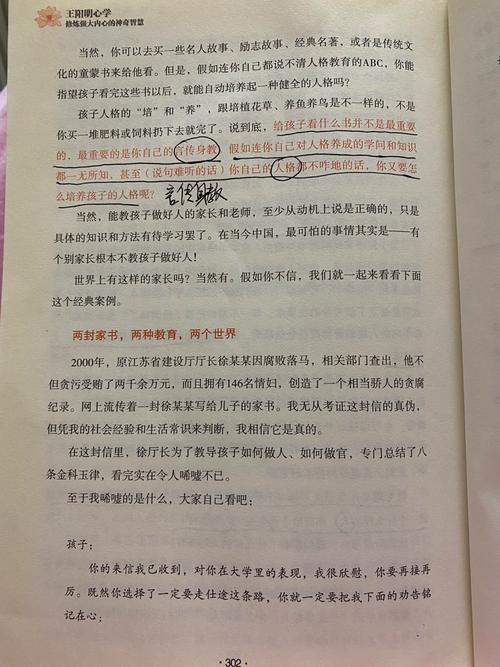 王阳明心学
修炼强大内心的神奇智慧
当然，你可以去买一些名人故事、励志故事、经典名著，或者是传统文
化的童蒙书来给他看。但是，假如连你自己都说不清人格教育的ABC，你能
指望孩子看完这些书以后，就能自动培养起一种健全的人格吗？
孩子人格的“培”和“养”，跟培植花草、养鱼养鸟是不一样的，不是
你买一堆肥料或饲料扔下去就完了。说到底，给孩子看什么书并不是最重要
的，最重要的是你自己的言传身教。假如连你自己对人格养成的学问和知识
都一无所知，甚至（说句难听的话）你自己的人格都不咋地的话，你又要怎
么培养孩子的人格呢？
言传身教
当然，能教孩子做好人的家长和老师，至少从动机上说是正确的，只是
具体的知识和方法有待学习罢了。在当今中国，最可怕的事情其实是——有
个别家长根本不教孩子做好人！
世界上有这样的家长吗？当然有。假如你不信，我们就一起来看看下面
这个经典案例。
两封家书，两种教育，两个世界
2000年，原江苏省建设厅厅长徐某某因腐败落马，相关部门查出，他不
但贪污受贿了两千余万元，而且拥有146名情妇，创造了一个相当骄人的贪腐
纪录。网上流传着一封徐某某写给儿子的家书。我无从考证这封信的真伪，
但凭我的社会经验和生活常识来判断，我相信它是真的。
在这封信里，徐厅长为了教导孩子如何做人、如何做官，专门总结了八
条金科玉律，看完实在令人唏嘘不已。
至于我唏嘘的是什么，大家自己看吧：
孩子：
你的来信我已收到，对你在大学里的表现，我很欣慰，你要再接再
厉。既然你选择了一定要走仕途这条路，你就一定要把我下面的劝告铭
记在心：
·302·